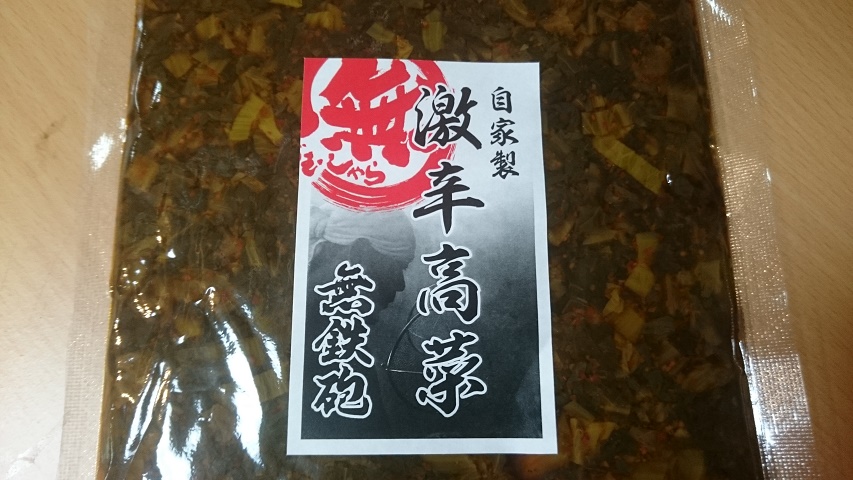 自家製
激辛高菜
無
むしゃら
無鉄砲